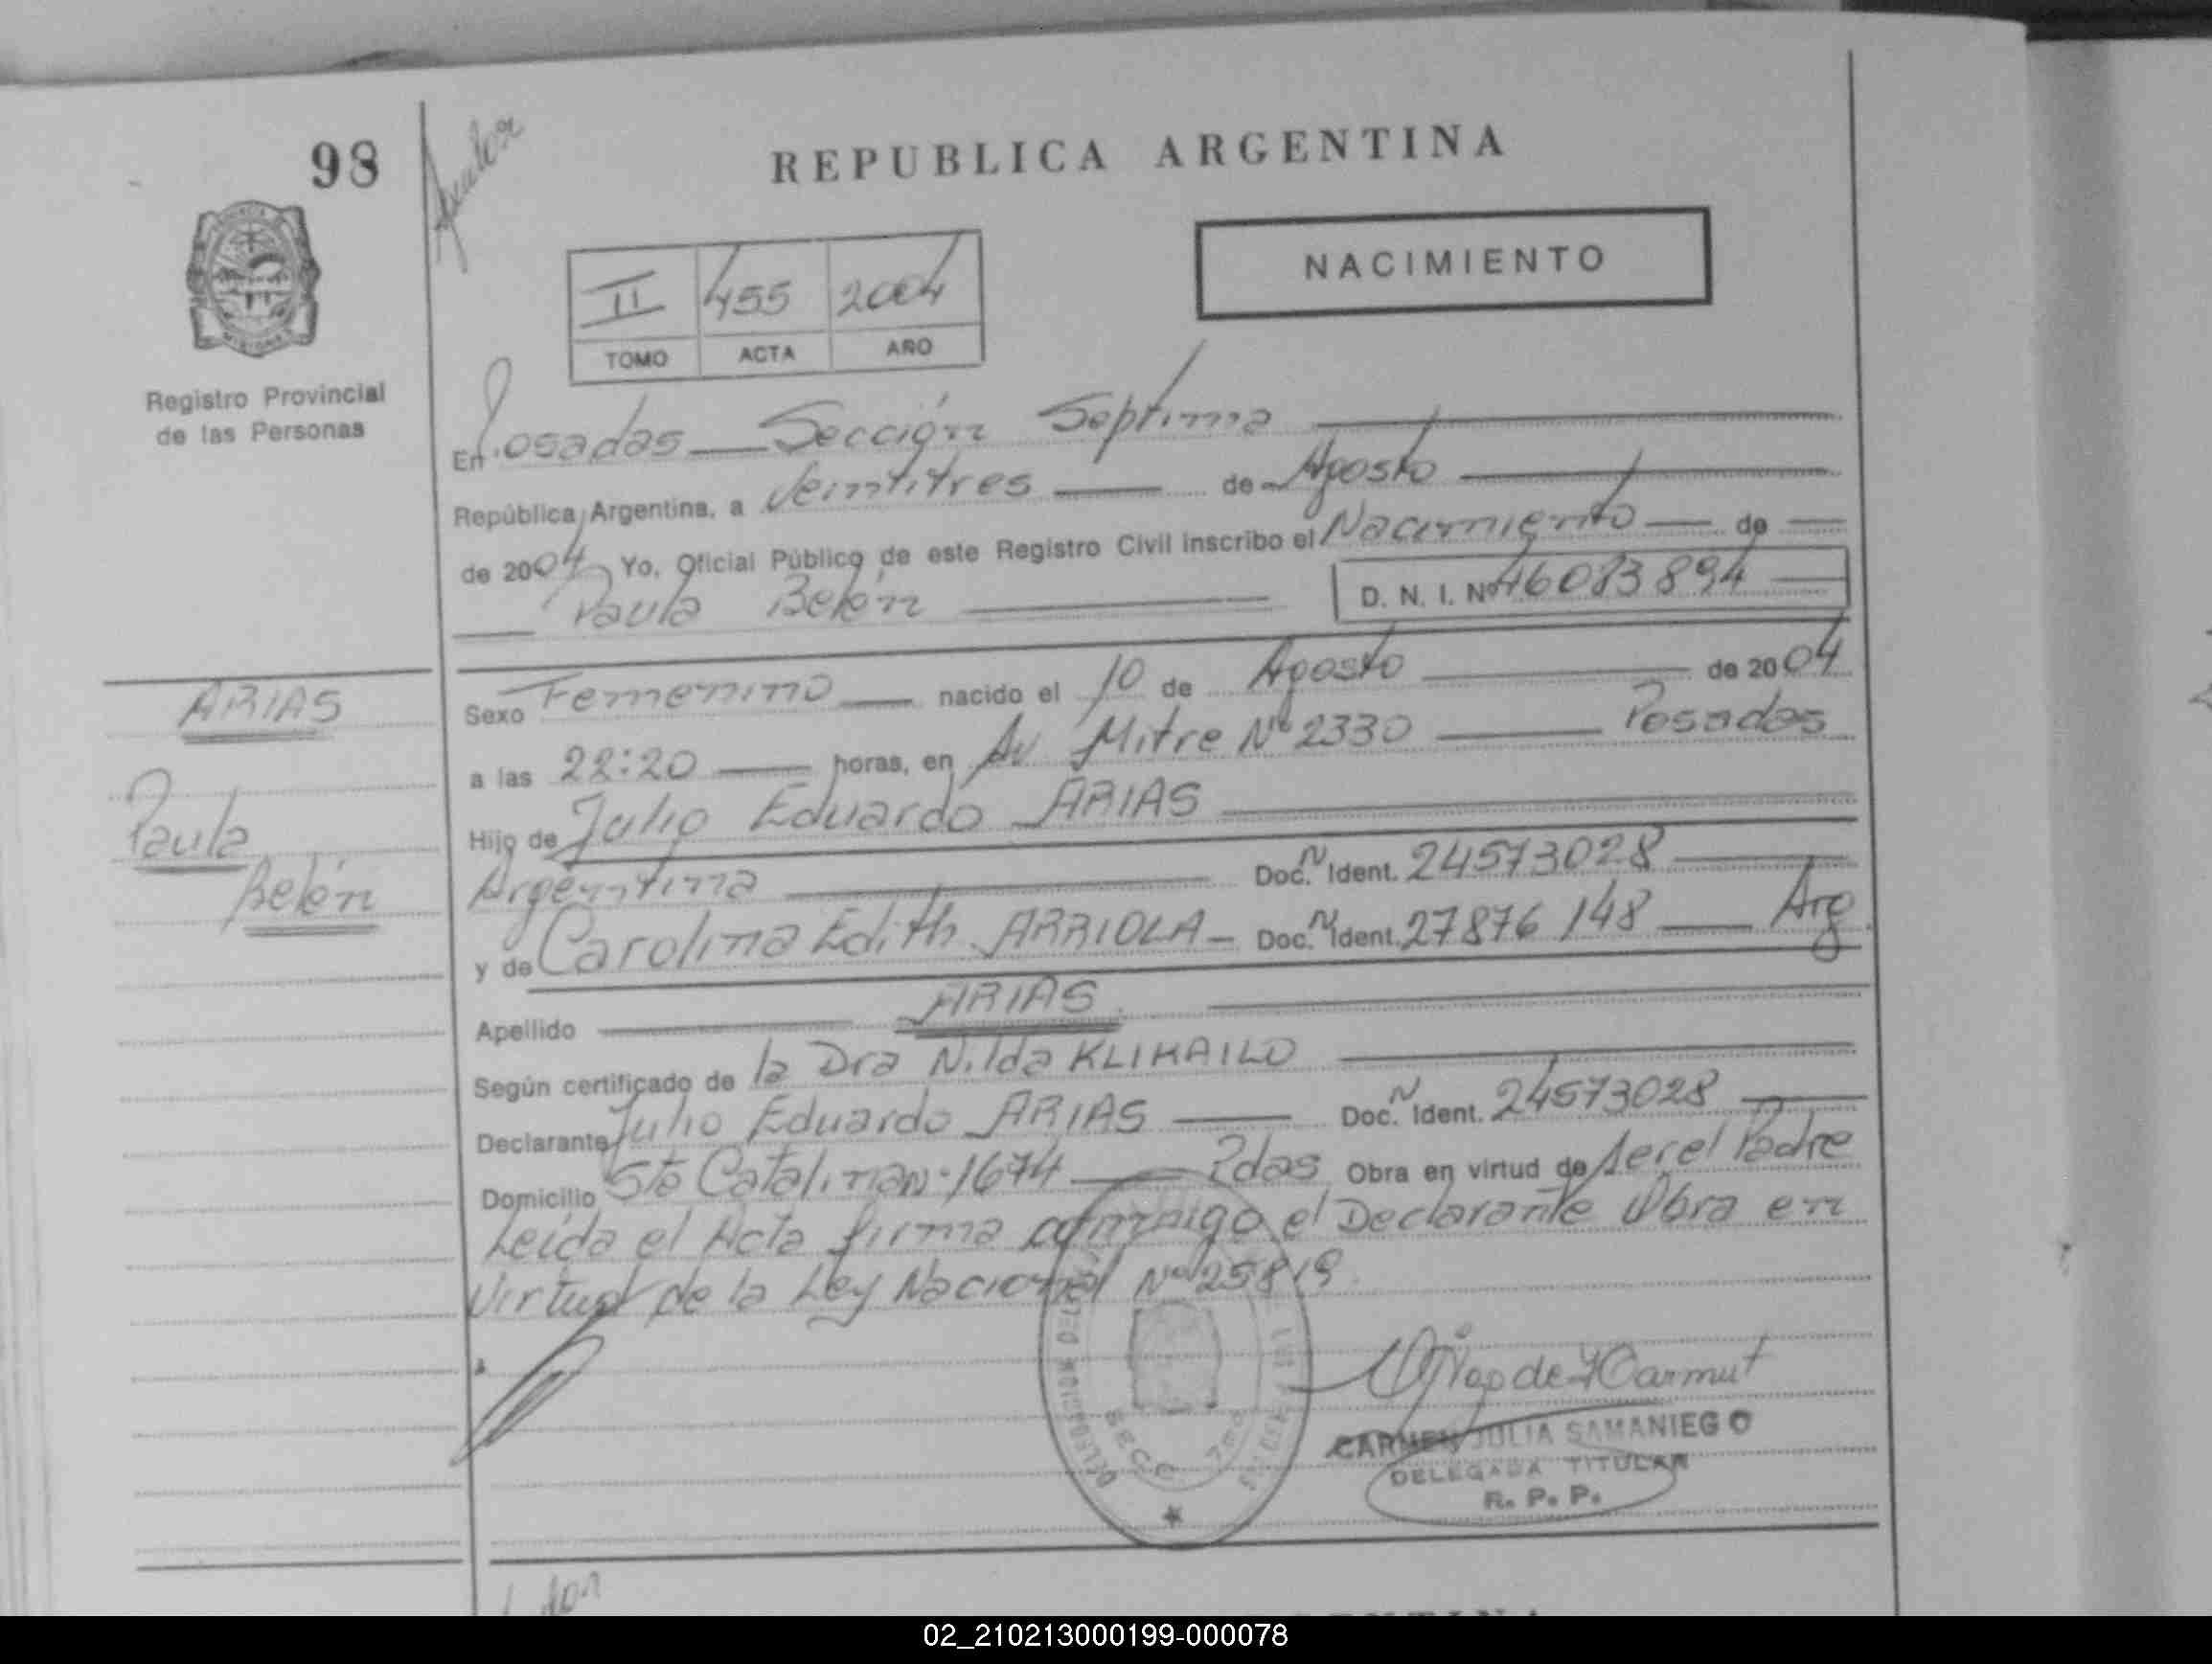 98
REPUBLICA ARGENTINA
NACIMIENTO
II 455 2004
TOMO ACTA AÑO
Registro Provincial
de las Personas
En Posadas Sección Septima
República Argentina, a Veintitres de Agosto
de 2004 Yo, Oficial Público de este Registro Civil inscribo el Nacimiento de
Paula Belén D. N. I. Nº 46083894
ARIAS
Paula
Belén
Sexo Femenino nacido el 10 de Agosto de 2004
a las 22:20 horas, en Av Mitre Nº 2330 Posadas
Hijo de Julio Eduardo ARIAS
Argentina Doc. N Ident. 24573028
y de Carolina Edith ARRIOLA Doc. N Ident. 27876148 Arg
Apellido ARIAS
Según certificado de la Dra Nilda KLIHAILO
Declarante Julio Eduardo ARIAS Doc. N Ident. 24573028
Domicilio Sta Catalina Nº 1674 Pdas Obra en virtud de ser el Padre
Leída el Acta firma conmigo el Declarante Obra en
Virtud de la Ley Nacional Nº 25819
CARMEN JULIA SAMANIEGO
DELEGADA TITULAR
R. P. P.
02_210213000199-000078